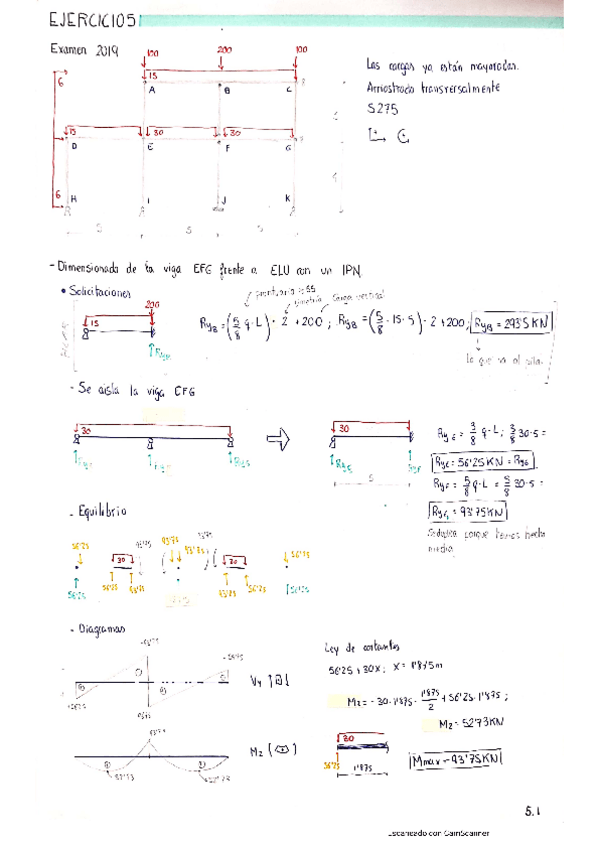 EJERCICIOS
Examen 2019
100 200 100
15
A B C
15 30 30
D E F G
6
6
H I J K
5 5 5
Las cargas ya están mayoradas.
Arriostrado transversalmente
S275
- Dimensionado de la viga EFG frente a ELU con un IPN.
• Solicitaciones
prontuario
simetría
200
15
RyB = (5/8 q·L) · 2 + 200 ; RyB = (5/8 · 15 · 5) · 2 + 200 ; RyB = 293'5 KN
lo que va al
- Se aísla la viga EFG
30
30
5
RyE = 3/8 q·L ; 3/8 30·5 =
RyE = 56'25 KN = RyG
RyF = 5/8 q·L = 5/8 30·5 =
RyF = 93'75 KN
porque hemos hecho
media
- Equilibrio
56'25 30 93'75 93'75 93'75 30 56'25
56'25 56'25 93'75 93'75 56'25 56'25
- Diagramas
Vy
Mz
Ley de cortantes
56'25 + 30x ; x = 1'875m
Mz = - 30 · 1'875 · 1'875/2 + 56'25 · 1'875 ;
Mz = 52'73 KN
30
56'25
1'875
Mmax = 93'75 KN
5.1
Escaneado con CamScanner